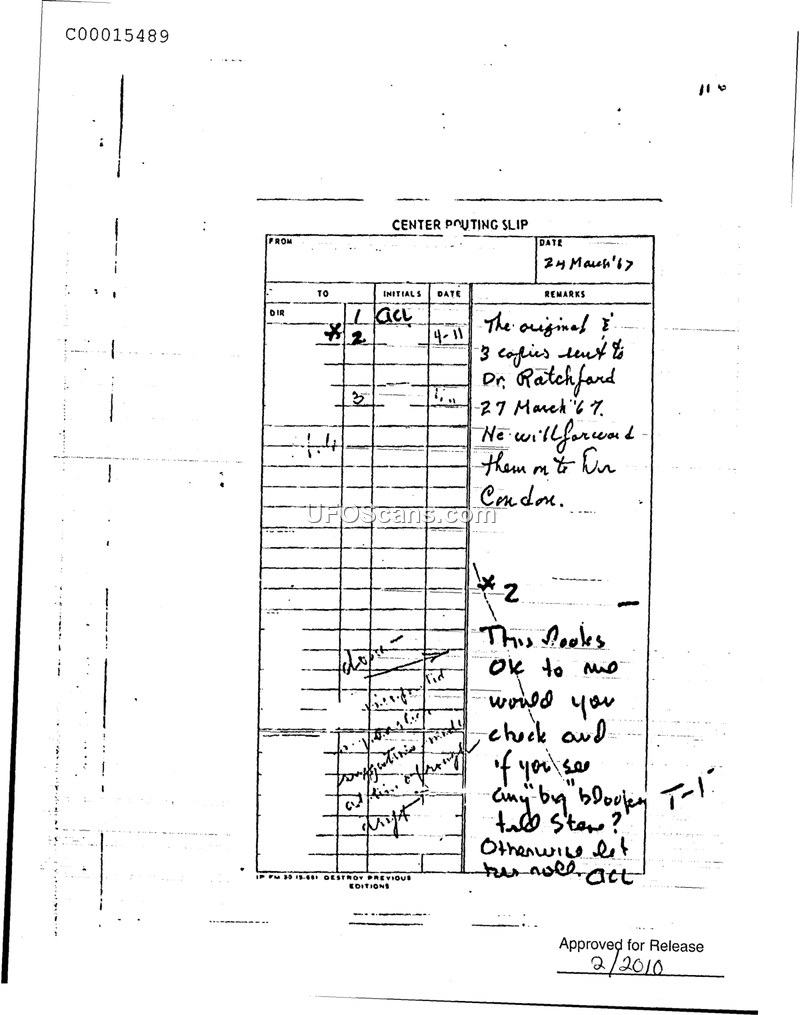 C00015489
11
CENTER ROUTING SLIP
FROM
DATE
24 March '67
TO
INITIALS
DATE
REMARKS
DIR
1
acl
* 2
4-11
3
" "
The original &
3 copies sent to
Dr. Ratchford
27 March '67.
He will forward
them on to Dr
Condon.
UFOScans.com
* 2
This looks
OK to me
would you
check and
if you see
any "big" blooper
tell Steve?
Otherwise let
her roll. acl
T-1
done —
suggestions made
at time of rough
draft
FM 30 DESTROY PREVIOUS
EDITIONS
Approved for Release
2/2010